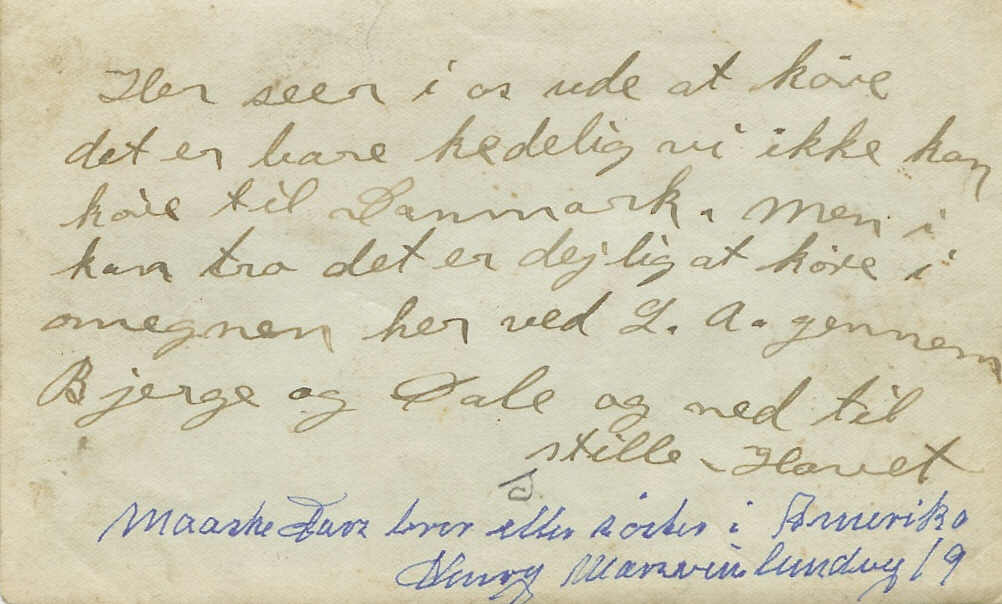 Her seer i os ude at köre
det er bare kedelig vi ikke kan
köre til Danmark. Men i
kan tro det er dejlig at köre i
omegnen her ved L. A. gennem
Bjerge og Dale og ned til
stille-Havet
Maaske Fars bror eller söster i Amerika
Henry